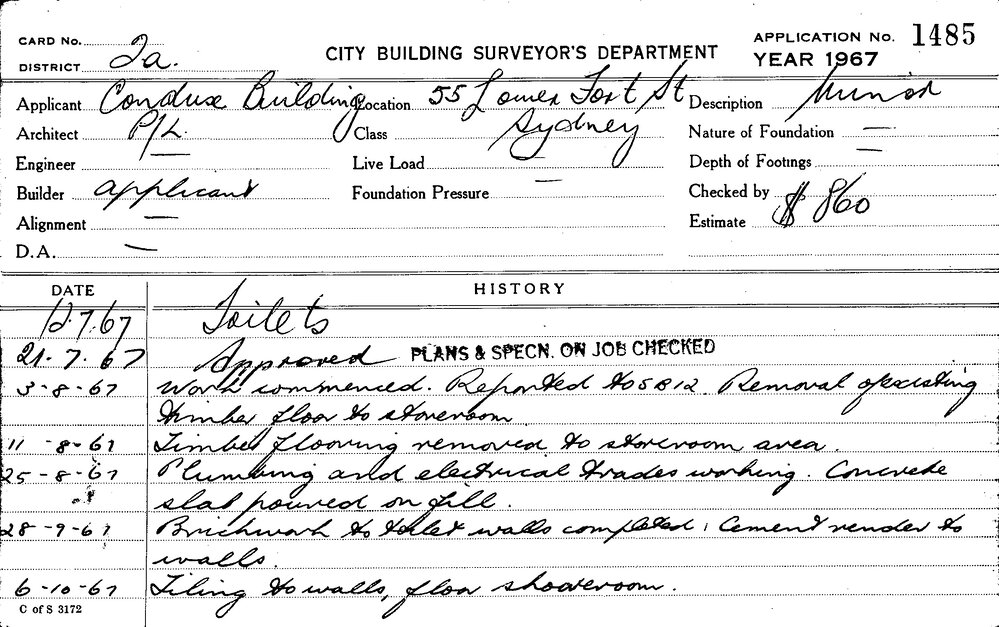 CARD No.
DISTRICT 2a.
CITY BUILDING SURVEYOR'S DEPARTMENT
APPLICATION No. 1485
YEAR 1967
Applicant Conduse Building Location 55 Lower Fort St Description Minor
Architect P/L. Class Sydney Nature of Foundation —
Engineer — Live Load — Depth of Footings —
Builder applicant Foundation Pressure — Checked by
Alignment — Estimate $ 860
D.A. —
DATE HISTORY
12.7.67 Toilets
21.7.67 Approved PLANS & SPECN. ON JOB CHECKED
3-8-67 Work commenced. Reported to SB12. Removal of existing
timber floor to storeroom
11-8-67 Timber flooring removed to storeroom area.
25-8-67 Plumbing and electrical trades working. Concrete
slab poured on fill.
28-9-67 Brickwork to toilet walls completed, Cement render to
walls.
6-10-67 Tiling to walls, floor showeroom.
C of S 3172